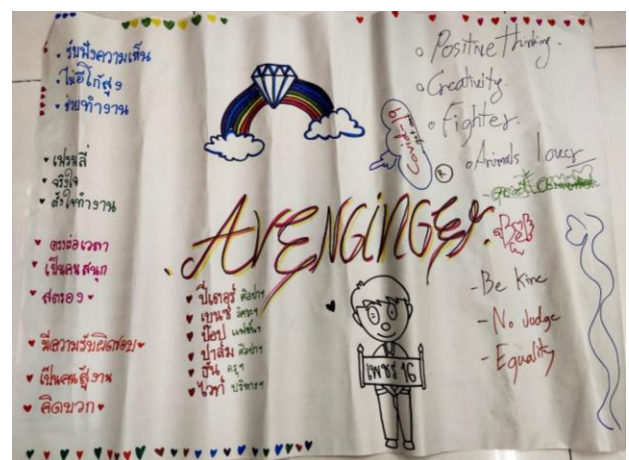 รับฟังความเห็น
ไม่อีโก้สูง
ช่วยทำงาน
เฟรนลี่
จริงใจ
ตั้งใจทำงาน
ตรงต่อเวลา
เป็นคนสนุก
สตรอง
มีความรับผิดชอบ
เป็นคนสู้งาน
คิดบวก
AVENGINGER.
ปีเตอร์ ศิลปะฯ
เบนซ์
ป๊อป
ปาล์ม ศิลปะฯ
ธัน ครุฯ
ไวท์ บริหารฯ
เพชร 16
Covid-19
Positive thinking.
Creativity.
Fighter.
Animals lover
- Be Kine
- No Judge
- Equality